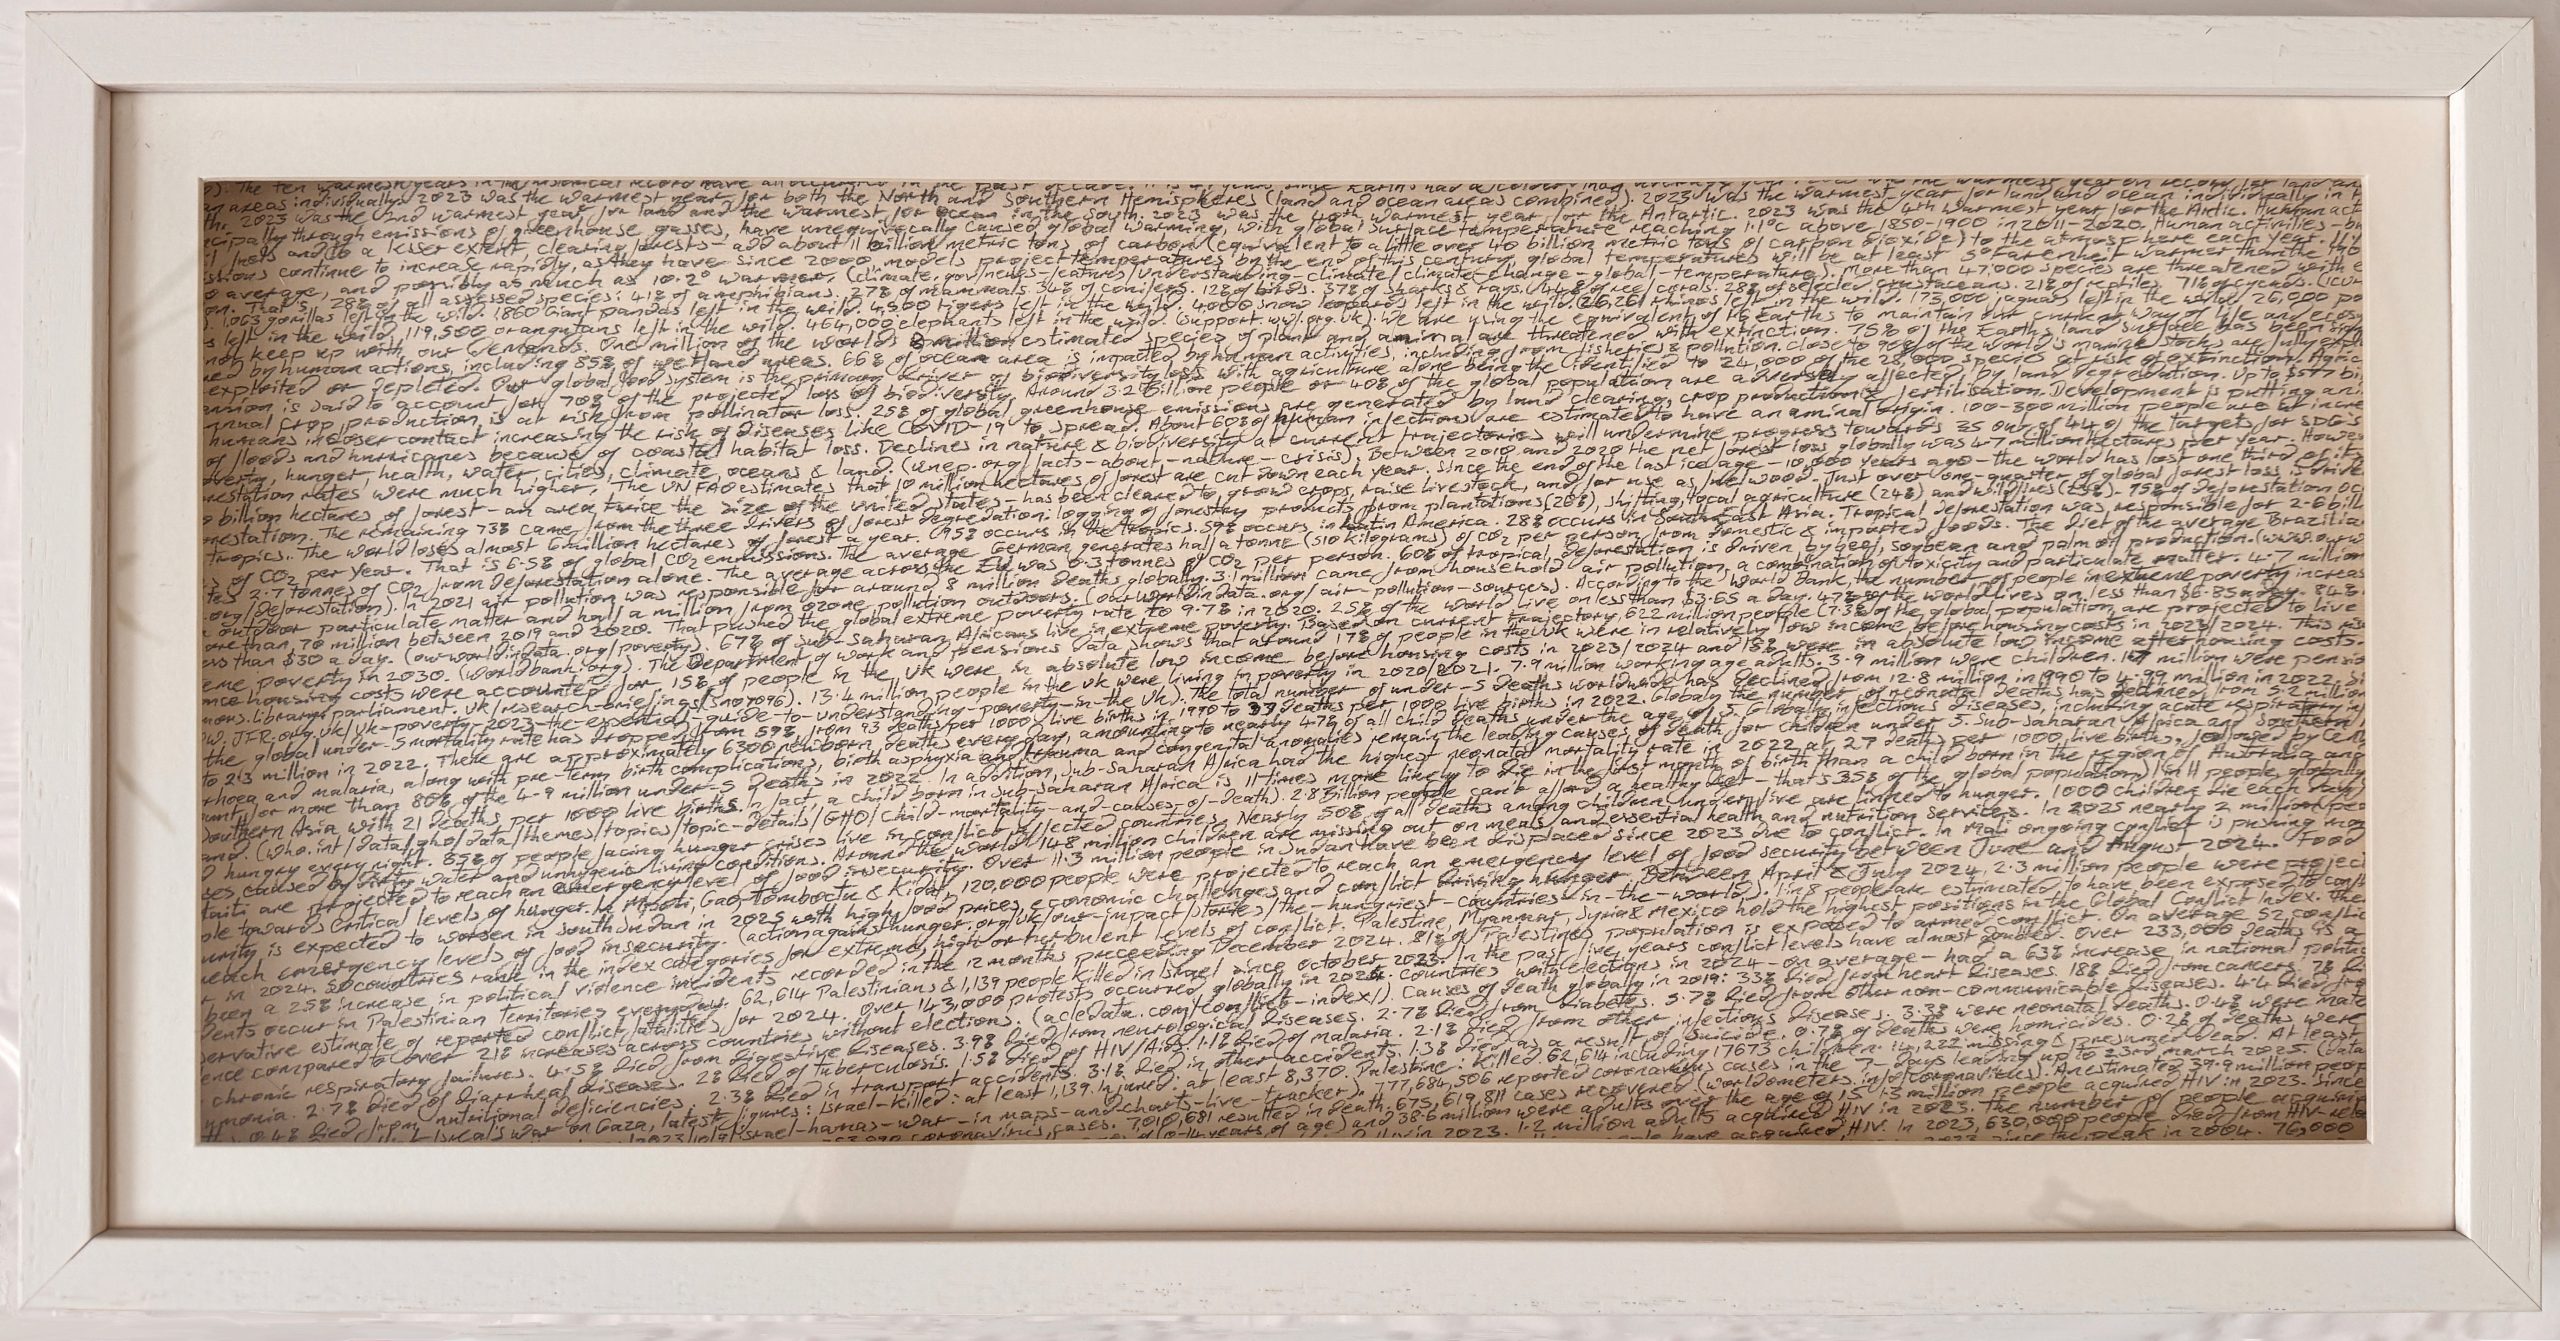 The ten warmest years in the historical record have all occurred in the past decade. the warmest year on record for land
an areas individually. 2023 was the warmest year for both the North and Southern Hemispheres (land and ocean areas combined). 2023 was the warmest year for land and ocean individually in
th. 2023 was the 2nd warmest year for land and the warmest for ocean in the South. 2023 was the warmest year for the Antartic. 2023 was the 4th warmest year for the Arctic. Human act
cipally through emissions of greenhouse gasses, have unequivecally caused global warming, with global surface temperature reaching 1.1°C above 1850-1900 in 2011-2020. Human activities -
and to a lesser extent, clearing forests - add about 11 billion metric tons of carbon (equivalent to a little over 40 billion metric tons of carbon dioxide) to the atmosphere each year.
ssions continue to increase rapidly, as they have since 2000, models project temperatures by the end of this century, global temperatures will be at least 5° farenheit warmer than the
average, and possibly as much as 10.2° warmer. (climate.gov/news-features/understanding-climate/climate-change-global-temperature). More than 47,000 species are threatened with e
on. That's 28% of all assessed species: 41% of amphibians. 27% of mammals. 34% of conifers. 12% of birds. 37% of sharks & rays. 44% of reef corals. 28% of selected crustaceans. 21% of reptiles. 71% of cycads.
). 1,063 gorillas left in the wild. 1860 Giant pandas left in the wild. 4,500 tigers left in the wild. 4000 snow leopards left in the wild. rhinos left in the wild. 173,000 jaguars left in the wild. 26,000 po
s left in the wild. 119,500 orangutans left in the wild. 464,000 elephants left in the wild. (support.wwf.org.uk). We are using the equivalent of 1.6 Earths to maintain our current way of life and ecosy
not keep up with our demands. One million of the world's 8 million estimated species of plant and animal are threatened with extinction. 75% of the Earth's land surface has been
ed by human actions, including 85% of wetland areas. 66% of ocean area is impacted by human activities, including from fisheries & pollution. Close to 90% of the world's marine stocks are fully expl
exploited or depleted. Our global food system is the primary driver of biodiversity loss with agriculture alone being the identified to 24,000 of the 28,000 species at risk of extinction. Agric
ansion is said to account for 70% of the projected loss of biodiversity. Around 3.2 Billion people or 40% of the global population are adversely affected by land degredation. Up to $577 bi
nnual crop production is at risk from pollinator loss. 25% of global greenhouse emissions are generated by land clearing, crop production & fertilisation. Development is putting ani
humans in closer contact increasing the risk of diseases like COVID-19 to spread. About 60% of human infections are estimated to have an animal origin. 100-300 million people are at incre
of floods and hurricanes because of coastal habitat loss. Declines in nature & biodiversity at current trajectories will undermine progress towards 35 out of 44 of the targets for SDG's
overty, hunger, health, water, cities, climate, oceans & land. (unep.org/facts-about-nature-crisis). Between 2010 and 2020 the net forest loss globally was 4.7 million hectares per year. Howev
restation rates were much higher. The UN FAO estimates that 10 million hectares of forest are cut down each year. Since the end of the last ice age - 10,000 years ago - the world has lost one third of its
billion hectares of forest - an area twice the size of the United States - has been cleared to grow crops, raise livestock, and for use as fuelwood. Just over one-quarter of global forest loss is drive
restation. The remaining 73% came from the three drivers of forest degredation: logging of forestry products from plantations (26%), shifting, local agriculture (24%) and wildfires (23%). 95% of deforestation oc
tropics. The world loses almost 6 million hectares of forest a year. 95% occurs in the tropics. 59% occurs in Latin America. 28% occurs in South East Asia. Tropical deforestation was responsible for 2.6 bill
s of CO2 per year. That is 6.5% of global CO2 emmissions. The average German generates half a tonne (510 kilograms) of CO2 per person from domestic & imported foods. The diet of the average Brazilia
tes 2.7 tonnes of CO2 from deforestation alone. The average across the EU was 0.3 tonnes of CO2 per person. 60% of tropical deforestation is driven by beef, soybean and palm oil production.
.org/deforestation). In 2021 air pollution was responsible for around 8 million deaths globally. 3.1 million came from household air pollution, a combination of toxicity and particulate matter. 4.7 million
outdoor particulate matter and half a million from ozone pollution outdoors. (ourworldindata.org/air-pollution-sources). According to the World Bank, the number of people in extreme poverty increas
ore than 70 million between 2019 and 2020. That pushed the global extreme poverty rate to 9.7% in 2020. 25% of the world live on less than $3.65 a day. 47% of the world lives on less than $6.85 a day. 84%
ess than $30 a day. (ourworldindata.org/poverty). 67% of Sub-Saharan Africans live in extreme poverty. Based on current trajectory, 622 million people (7.3% of the global population) are projected to live
eme poverty in 2030. (worldbank.org). The Department of Work and Pensions data shows that around 17% of people in the UK were in relatively low income before housing costs in 2023/2024. This
nce housing costs were accounted for 15% of people in the UK were in absolute low income before housing costs in 2023/2024 and 18% were in absolute low income after housing costs.
mons.library.parliament.uk/research-briefings/sn07096). 13.4 million people in the UK were living in poverty in 2020/2021. 7.9 million working age adults. 3.9 million were children. million were pensio
w.JFR.org.uk/uk-poverty-2023-the-essential-guide-to-understanding-poverty-in-the-UK). The total number of under-5 deaths worldwide has declined from 12.8 million in 1990 to 4.99 million in 2022.
the global under-5 mortality rate has dropped from 59% from 93 deaths per 1000 live births in 1990 to 37 deaths per 1000 live births in 2022. Globaly the number of neonatal deaths has declined from 5.2 million
to 2.3 million in 2022. There are approximately 6300 newborn deaths every day, amounting to nearly 47% of all child deaths under the age of 5. Globally infectious diseases, including acute respiratory in
rhoea and malaria, along with pre-term birth complications, birth asphyxia and trauma and congenital anomalies remain the leading causes of death for children under 5. Sub-Saharan Africa and Southern
unt for more than 80% of the 4.9 million under-5 deaths in 2022. In addition, Sub-Saharan Africa had the highest neonatal mortality rate in 2022 at 27 deaths per 1000 live births, followed by
Southern Asia with 21 deaths per 1000 live births. In fact, a child born in Sub-Saharan Africa is 11 times more likely to die in the first month of birth than a child born in the region of Australia and
and. (who.int/data/gho/data/themes/topics/topic-details/GHO/child-mortality-and-causes-of-death). 2.8 Billion people can't afford a healthy diet - that's 35% of the global population. 1 in 11 people, globally
hungry every night. 85% of people facing hunger crises live in conflict affected countries. Nearly 50% of all deaths among children under five are linked to hunger. 1000 children die each day
ses caused by dirty water and unhygienic living conditions. Around the world 148 million children are missing out on meals and essential health and nutrition services. In 2025 nearly 2 million peo
Haiti are projected to reach an emergency level of food insecurity. Over 11.3 million people in Sudan have been displaced since 2023 due to conflict. In Mali ongoing conflict is pushing mor
ple towards critical levels of hunger. In Mopti, Gao, Tombouctu & Kidal, 120,000 people were projected to reach an emergency level of food security between June and August 2024. Food
urity is expected to worsen in South Sudan in 2025 with high food prices, economic challenges and conflict driving hunger. Between April & July 2024, 2.3 million people were project
reach emergency levels of food insecurity. (actionagainsthunger.org/uk/our-impact/stories/the-hungriest-countries-in-the-world). 1 in 8 people are estimated to have been exposed to confl
in 2024. 50 countries rank in the index categories for extreme, high or turbulent levels of conflict. Palestine, Myanmar, Syria & Mexico hold the highest positions in the Global Conflict Index. The
been a 25% increase in political violence incidents recorded in the 12 months preceeding December 2024. 81% of Palestine's population is exposed to armed conflict. On average 52 conflic
dents occur in Palestinian Territories everyday. 62,614 Palestinians & 1,139 people killed in Israel since October 2023. In the past five years conflict levels have almost doubled. Over 233,000 deaths is a
ervative estimate of reported conflict fatalities for 2024. Over 143,000 protests occurred globally in 2024. Countries with elections in 2024 - on average - had a 63% increase in national politic
ence compared to over 21% increases across countries without elections. (acledata.com/conflict-index/). Causes of death globally in 2019: 33% died from heart diseases. 18% died from cancers. 7%
chronic respiratory failures. 4.5% died from digestive diseases. 3.9% died from neurological diseases. 2.7% died from diabetes. 5.7% died from other non-communicable diseases. 4.4% died fro
umonia. 2.7% died of diarrheal diseases. 2% died of tuberculosis. 1.5% died of HIV/Aids. 1.1% died of malaria. 2.1% died from other infectious diseases. 3.3% were neonatal deaths. 0.4% were mate
0.4% died from nutritional deficiencies. 2.3% died in transport accidents. 3.1% died in other accidents. 1.3% died as a result of suicide. 0.7% of deaths were homicides. 0.2% of deaths were
Isreal's war on Gaza, latest figures: Israel - killed: at least 1,139. Injured: at least 8,370. Palestine: Killed 62,614 including 17673 children. 14,222 missing & presumed dead. At least
israel-hamas-war-in-maps-and-charts-live-tracker). 777,684,506 reported coronavirus cases in the 7 days leading up to 23rd March 2025. (data
coronavirus cases. 7,010,681 resulted in death. 675,619,811 cases recovered (worldometers.info/coronavirus). An estimated 39.9 million peop
(0-14 years of age) and 38.6 million were adults over the age of 15. 1.3 million people acquired HIV in 2023. Since
HIV in 2023. 1.2 million adults acquired HIV in 2023. The number of people acquirin
have acquired HIV. In 2023, 630,000 people died from HIV-rela
since the peak in 2004. 76,000